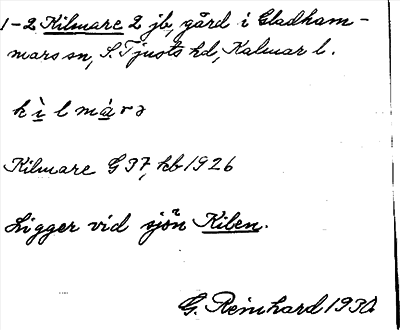 1-2 Kilmare 2 jb, gård i Gladham-
mars sn, S. Tjusts hd, Kalmar l.
kìlmárə
Kilmare G 37, kb 1926
Ligger vid sjön Kilen.
G. Reinhard 1930.